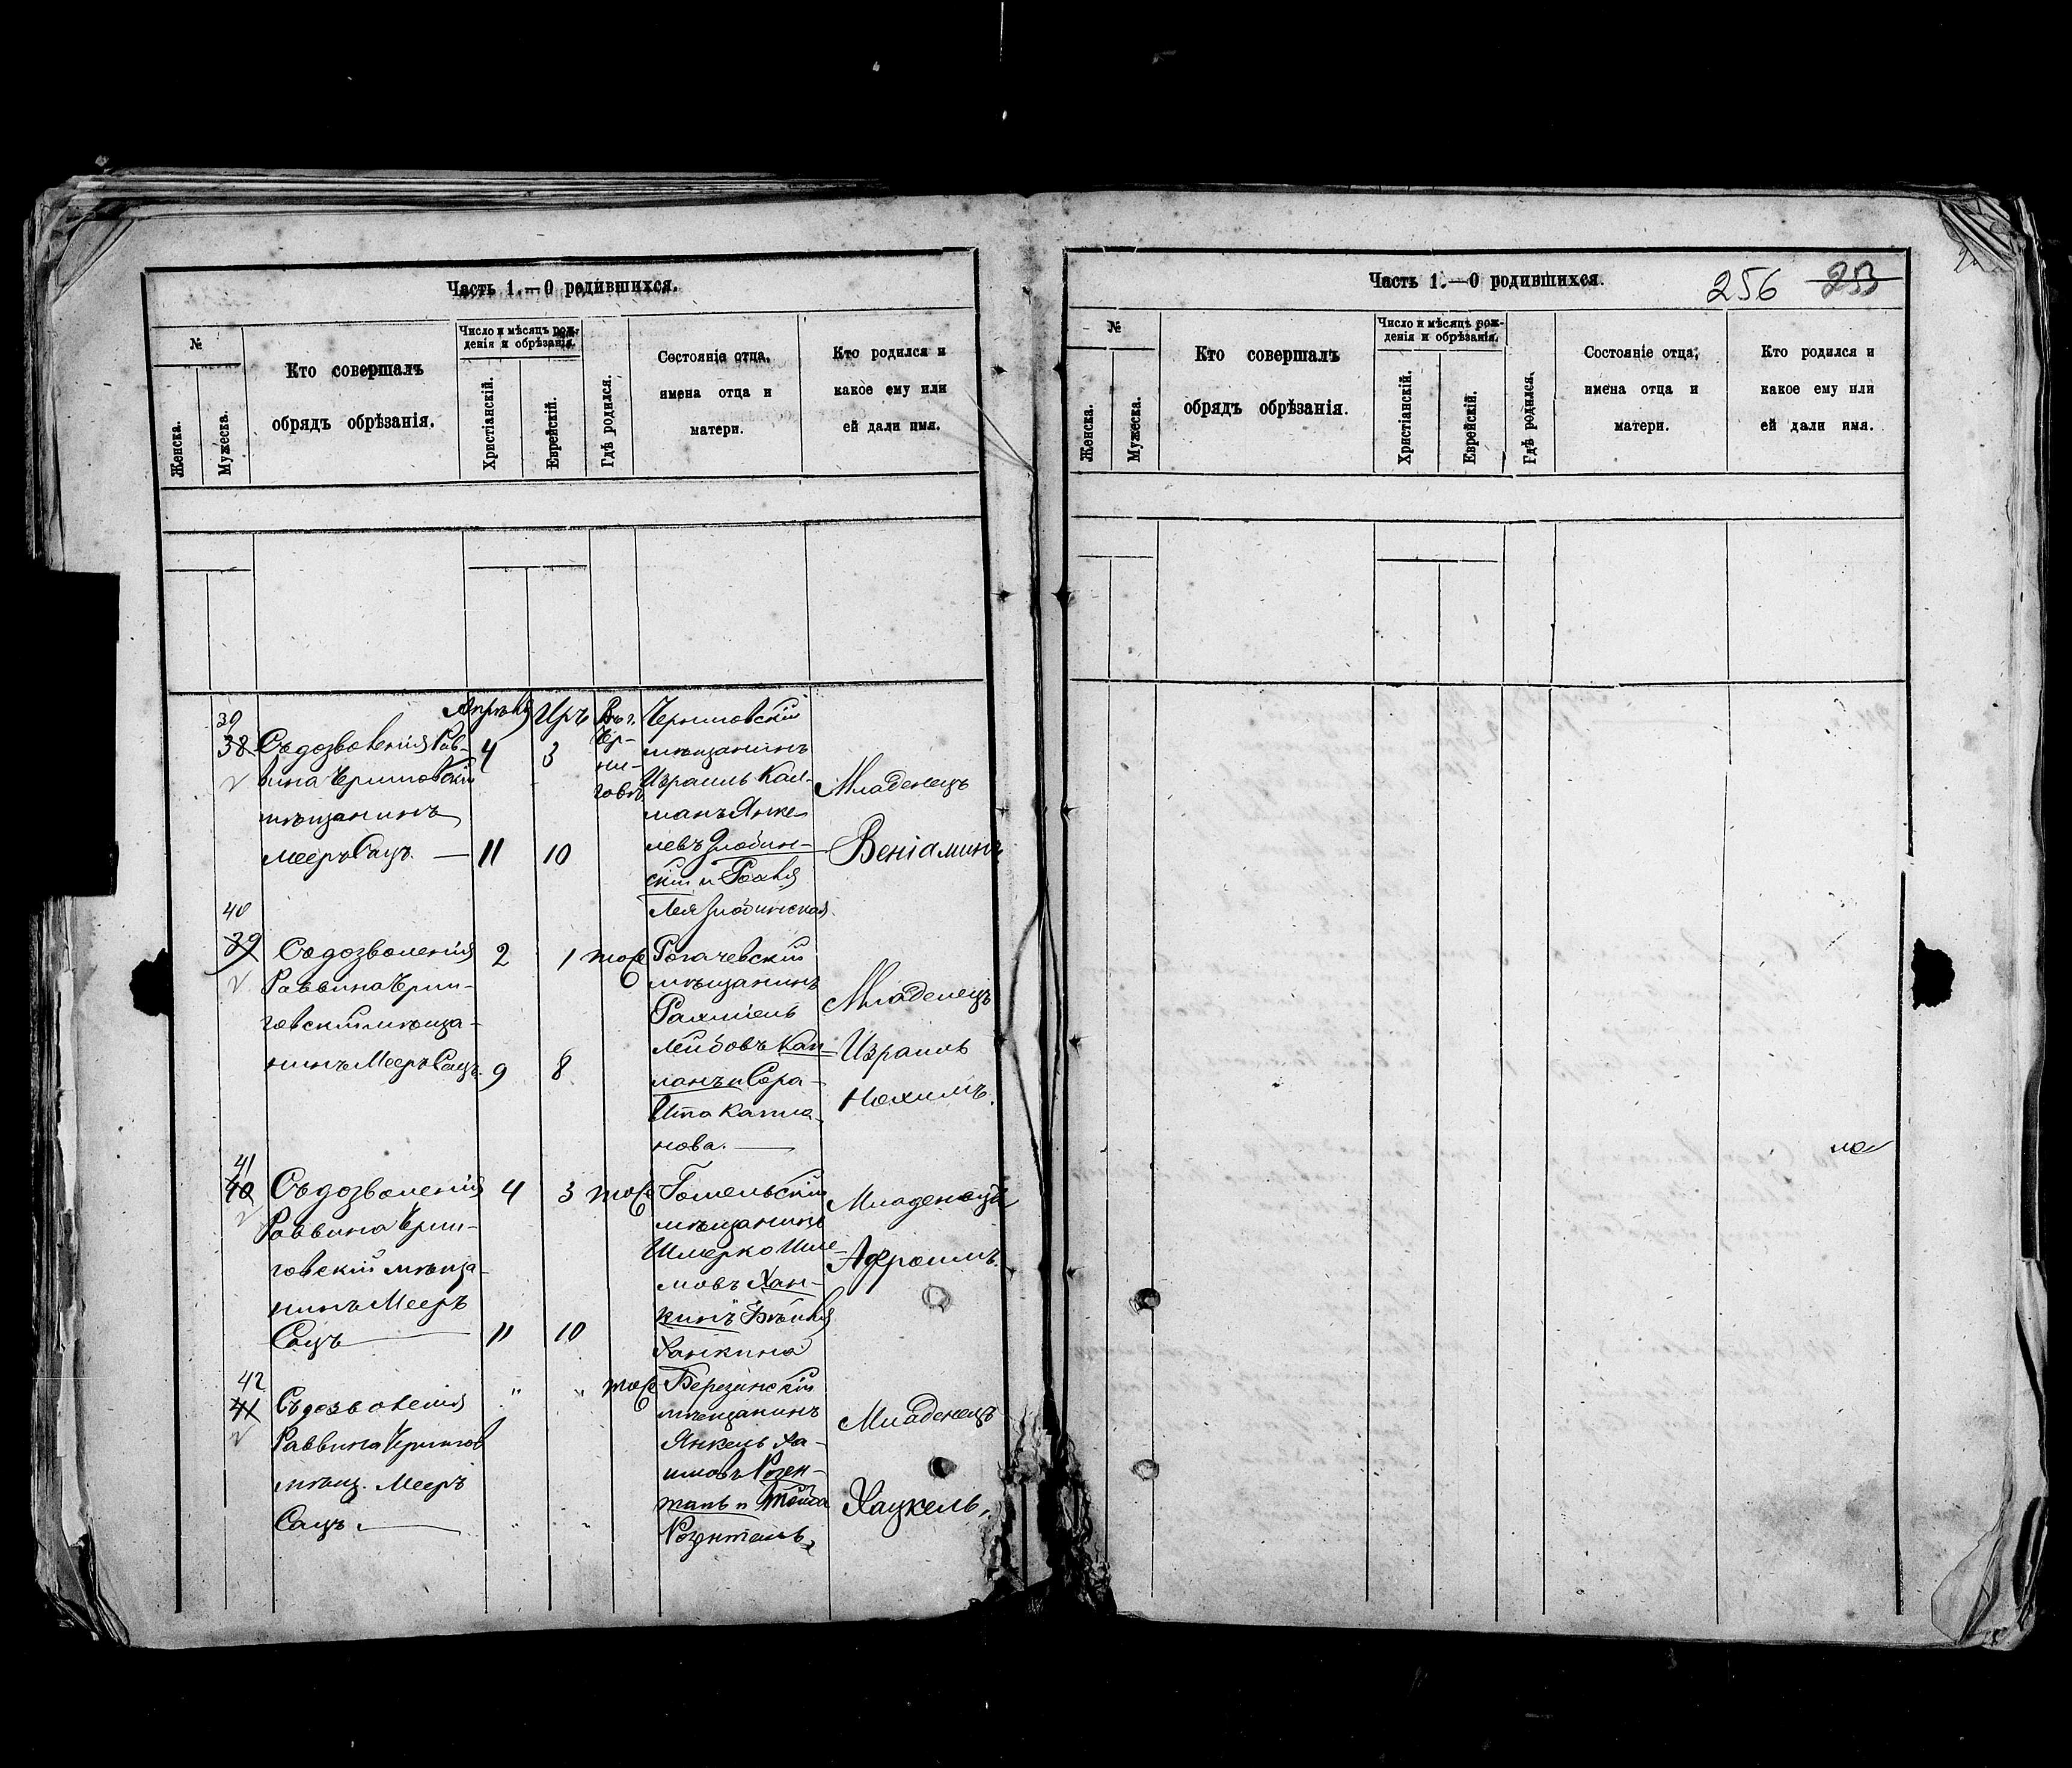 Часть 1.—О родившихся.
№
Женска.
Мужеска.
Кто совершалъ
обрядъ обрѣзанія.
Число и мѣсяцъ рож-
денія и обрѣзанія.
Христіанскій.
Еврейскій.
Гдѣ родился.
Состояніе отца,
имена отца и
матери.
Кто родился и
какое ему или
ей дали имя.
39
38
Съ дозволенія Рав-
вина Черниговскій
мѣщанинъ
Мееръ Сацъ.
Апрѣль
4
11
Иръ
3
10
Въ г.
Чер-
ни-
говѣ
Черниговскій
мѣщанинъ
Израиль Кал-
манъ Янке-
левъ Злобин-
скій и
Лея Злобинская.
Младенецъ
Веніаминъ
40
39
Съ дозволенія
Раввина Черни-
говскій мѣща-
нинъ Мееръ Сацъ.
2
9
1
8
тоже
Рогачевскій
мѣщанинъ
Рахміель
Лейбовъ Кап-
ланъ и Сора-
Ита Капла-
нова.
Младенецъ
Израиль
Нохимъ.
41
40
Съ дозволенія
Раввина Черни-
говскій мѣща-
нинъ Мееръ
Сацъ
4
11
3
10
тоже
Гомельскій
мѣщанинъ
Шмерко Шле-
мовъ Хан-
кинъ
Ханкина
Младенецъ
Афроимъ.
42
41
Съ дозволенія
Раввина Чернигов
мѣщ. Мееръ
Сацъ.
"
"
тоже
Березинскій
мѣщанинъ
Янкель Ха-
имовъ Розен-
таль и
Розенталь
Младенецъ
Хацкель,
Часть 1.—О родившихся.
256
253
№
Женска.
Мужеска.
Кто совершалъ
обрядъ обрѣзанія.
Число и мѣсяцъ рож-
денія и обрѣзанія.
Христіанскій.
Еврейскій.
Гдѣ родился.
Состояніе отца,
имена отца и
матери.
Кто родился и
какое ему или
ей дали имя.